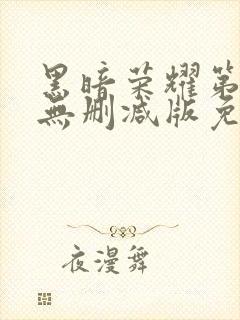 黑暗荣耀第
無删减版免
夜漫舞